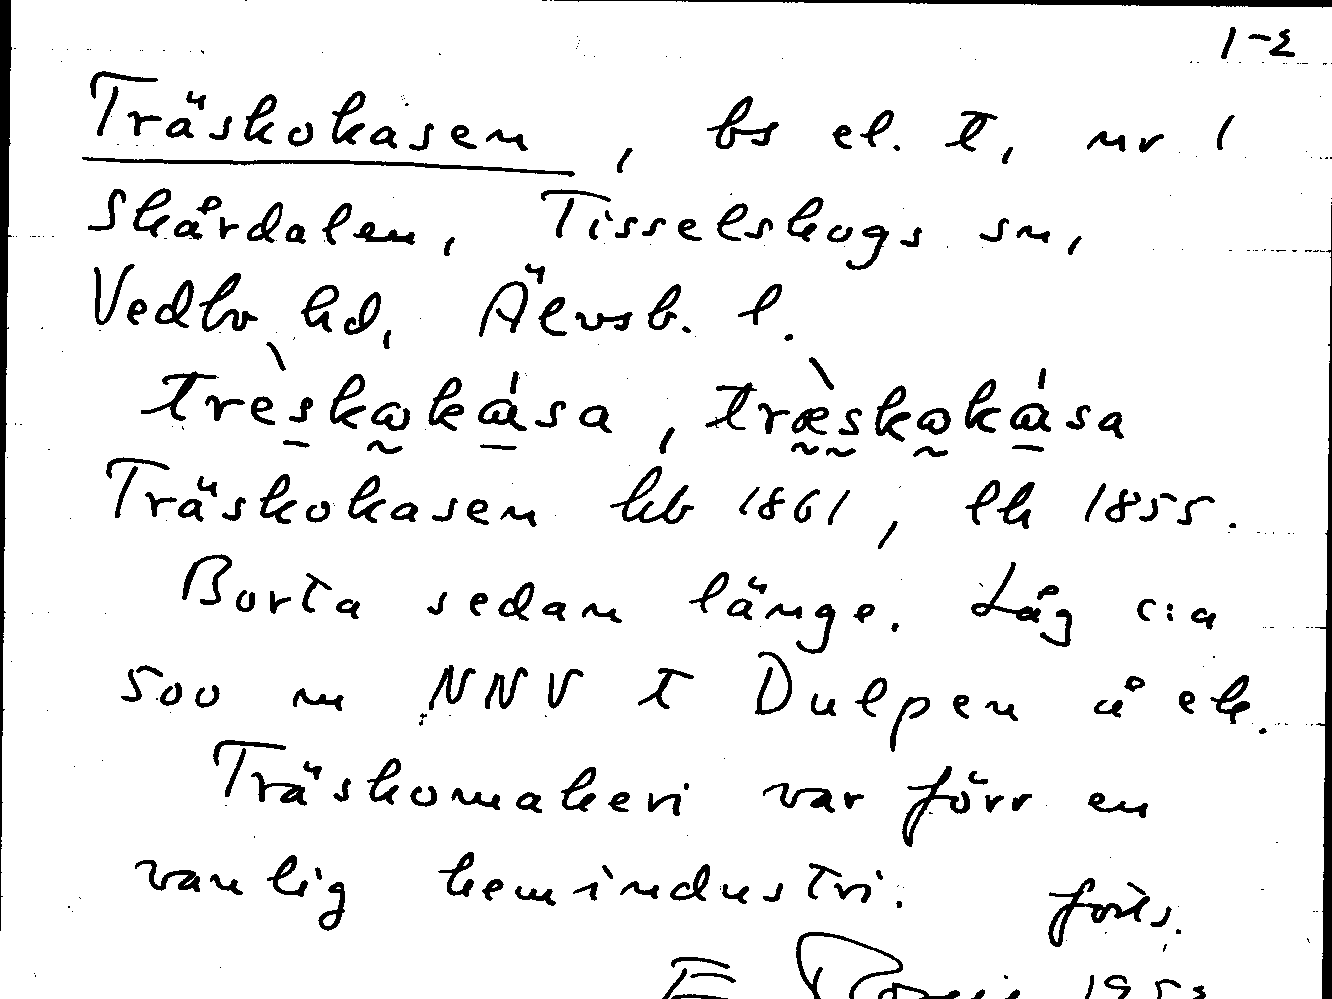 1-2
Träskokasen, bs el. t, nr 1
Skårdalen, Tisselskogs sn,
Vedbo hd, Älvsb. l.
trèskωkása, træ̀skωkása
Träskokasen kb 1861, lk 1855.
Borta sedan länge. Låg c:a
500 m NNV t Dulpen å ek.
Träskomakeri var förr en
vanlig hemindustri. forts.
E